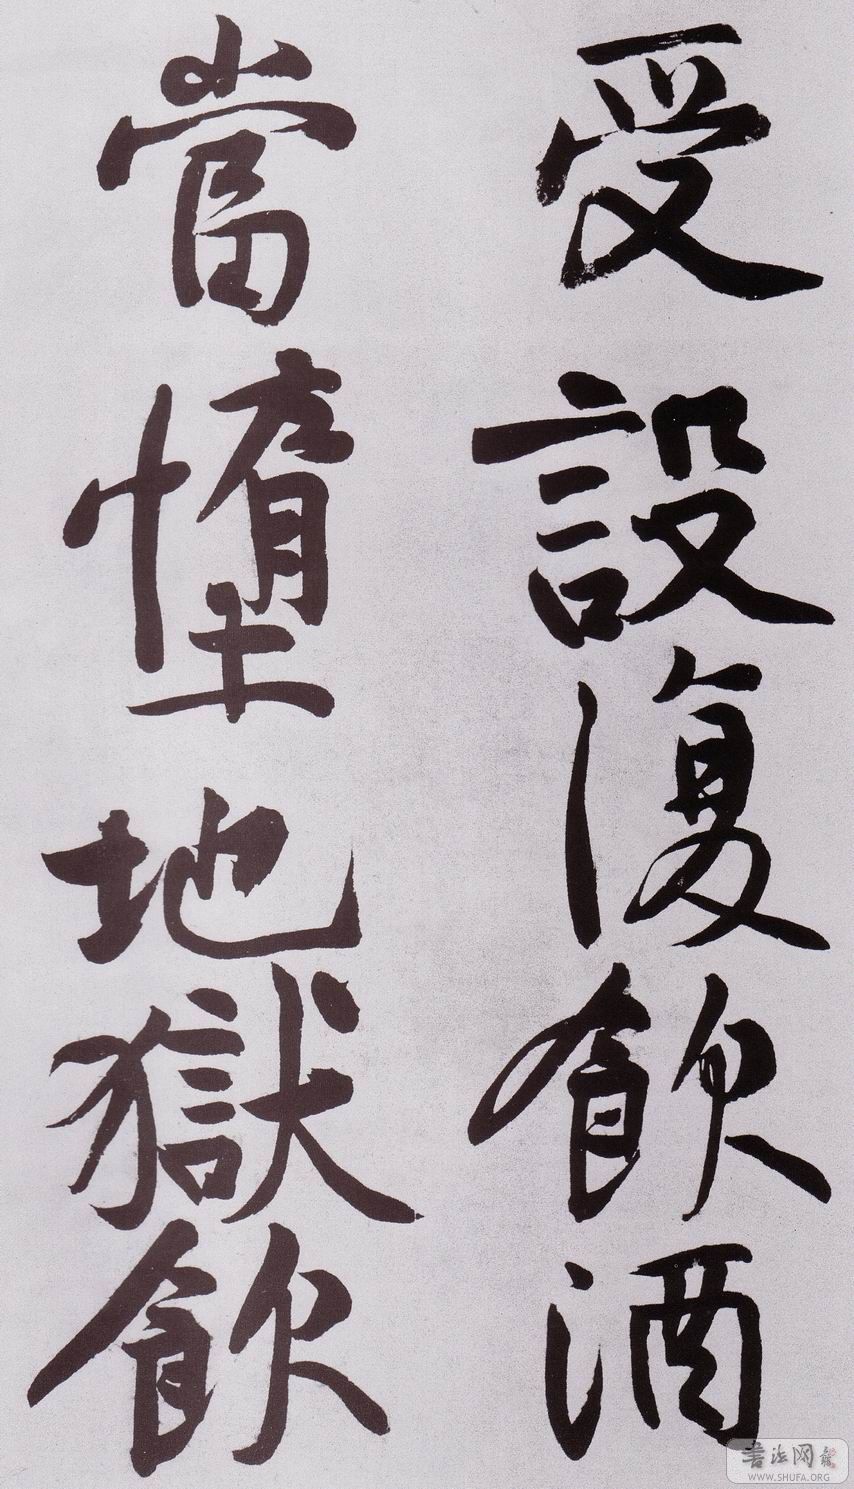 受設復飲酒
當墮地獄飲
書法网
WWW.SHUFA.ORG